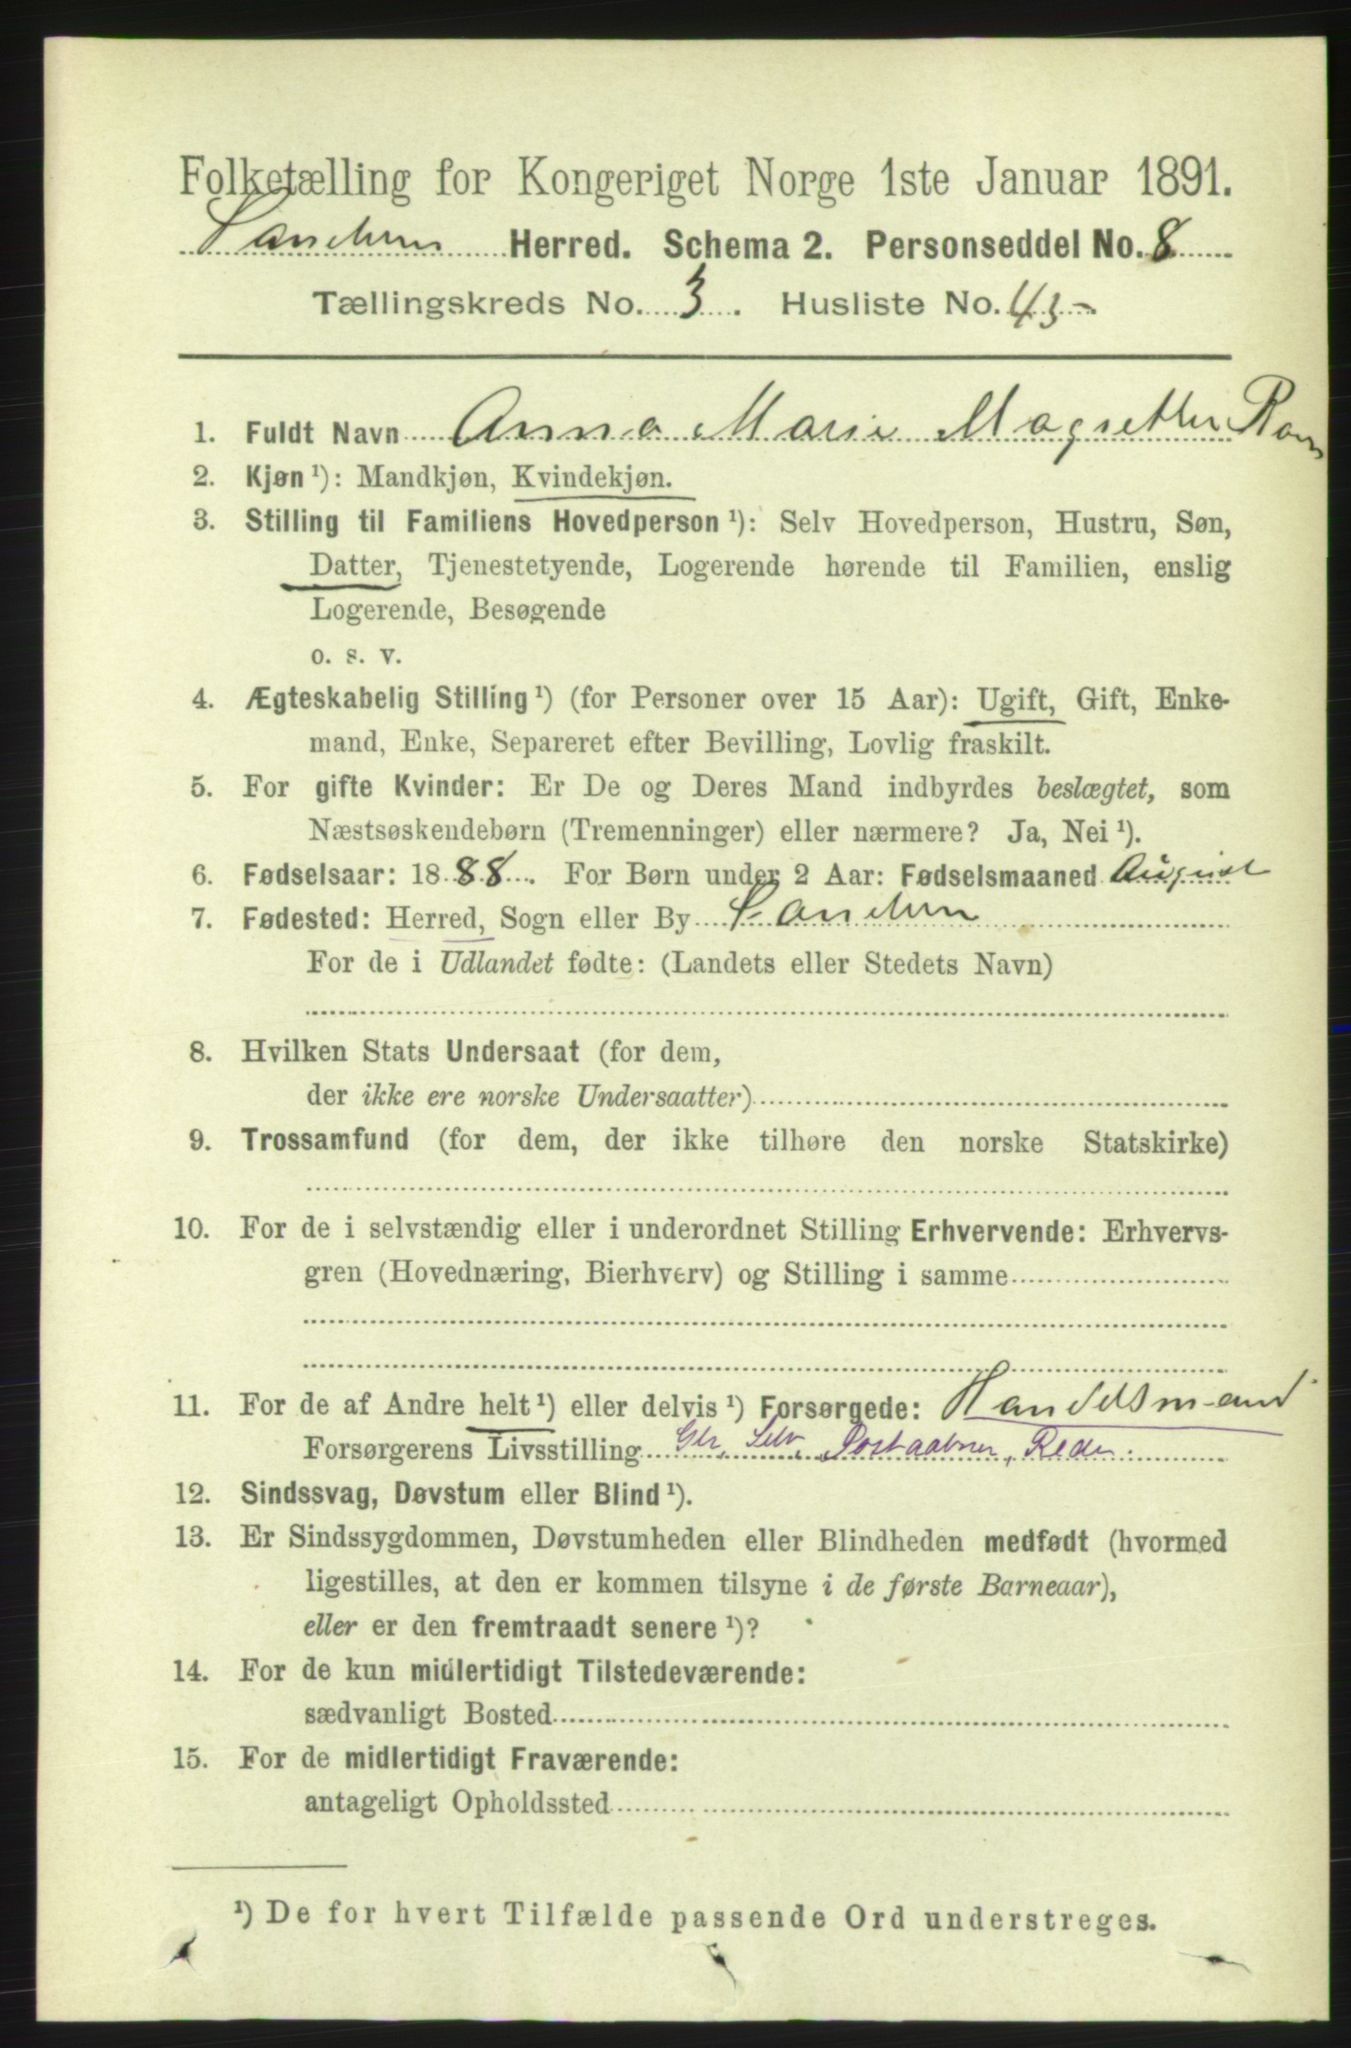 Folketælling for Kongeriget Norge 1ste Januar 1891.
Herred. Schema 2. Personseddel No. 8
Tællingskreds No. 3. Husliste No. 43
1. Fuldt Navn Anna Marie
2. Kjøn ¹): Mandkjøn, Kvindekjøn.
3. Stilling til Familiens Hovedperson ¹): Selv Hovedperson, Hustru, Søn,
Datter, Tjenestetyende, Logerende hørende til Familien, enslig
Logerende, Besøgende
o. s. v.
4. Ægteskabelig Stilling ¹) (for Personer over 15 Aar): Ugift, Gift, Enke-
mand, Enke, Separeret efter Bevilling, Lovlig fraskilt.
5. For gifte Kvinder: Er De og Deres Mand indbyrdes beslægtet, som
Næstsøskendebørn (Tremenninger) eller nærmere? Ja, Nei ¹).
6. Fødselsaar: 1888. For Børn under 2 Aar: Fødselsmaaned August
7. Fødested: Herred, Sogn eller By
For de i Udlandet fødte: (Landets eller Stedets Navn)
8. Hvilken Stats Undersaat (for dem,
der ikke ere norske Undersaatter)
9. Trossamfund (for dem, der ikke tilhøre den norske Statskirke)
10. For de i selvstændig eller i underordnet Stilling Erhvervende: Erhvervs-
gren (Hovednæring, Bierhverv) og Stilling i samme
11. For de af Andre helt ¹) eller delvis ¹) Forsørgede: Handelsmand
Forsørgerens Livsstilling Gbr, Selv, Postaabner, Reder.
12. Sindssvag, Døvstum eller Blind ¹).
13. Er Sindssygdommen, Døvstumheden eller Blindheden medfødt (hvormed
ligestilles, at den er kommen tilsyne i de første Barneaar),
eller er den fremtraadt senere ¹)?
14. For de kun midlertidigt Tilstedeværende:
sædvanligt Bosted
15. For de midlertidigt Fraværende:
antageligt Opholdssted
¹) De for hvert Tilfælde passende Ord understreges.